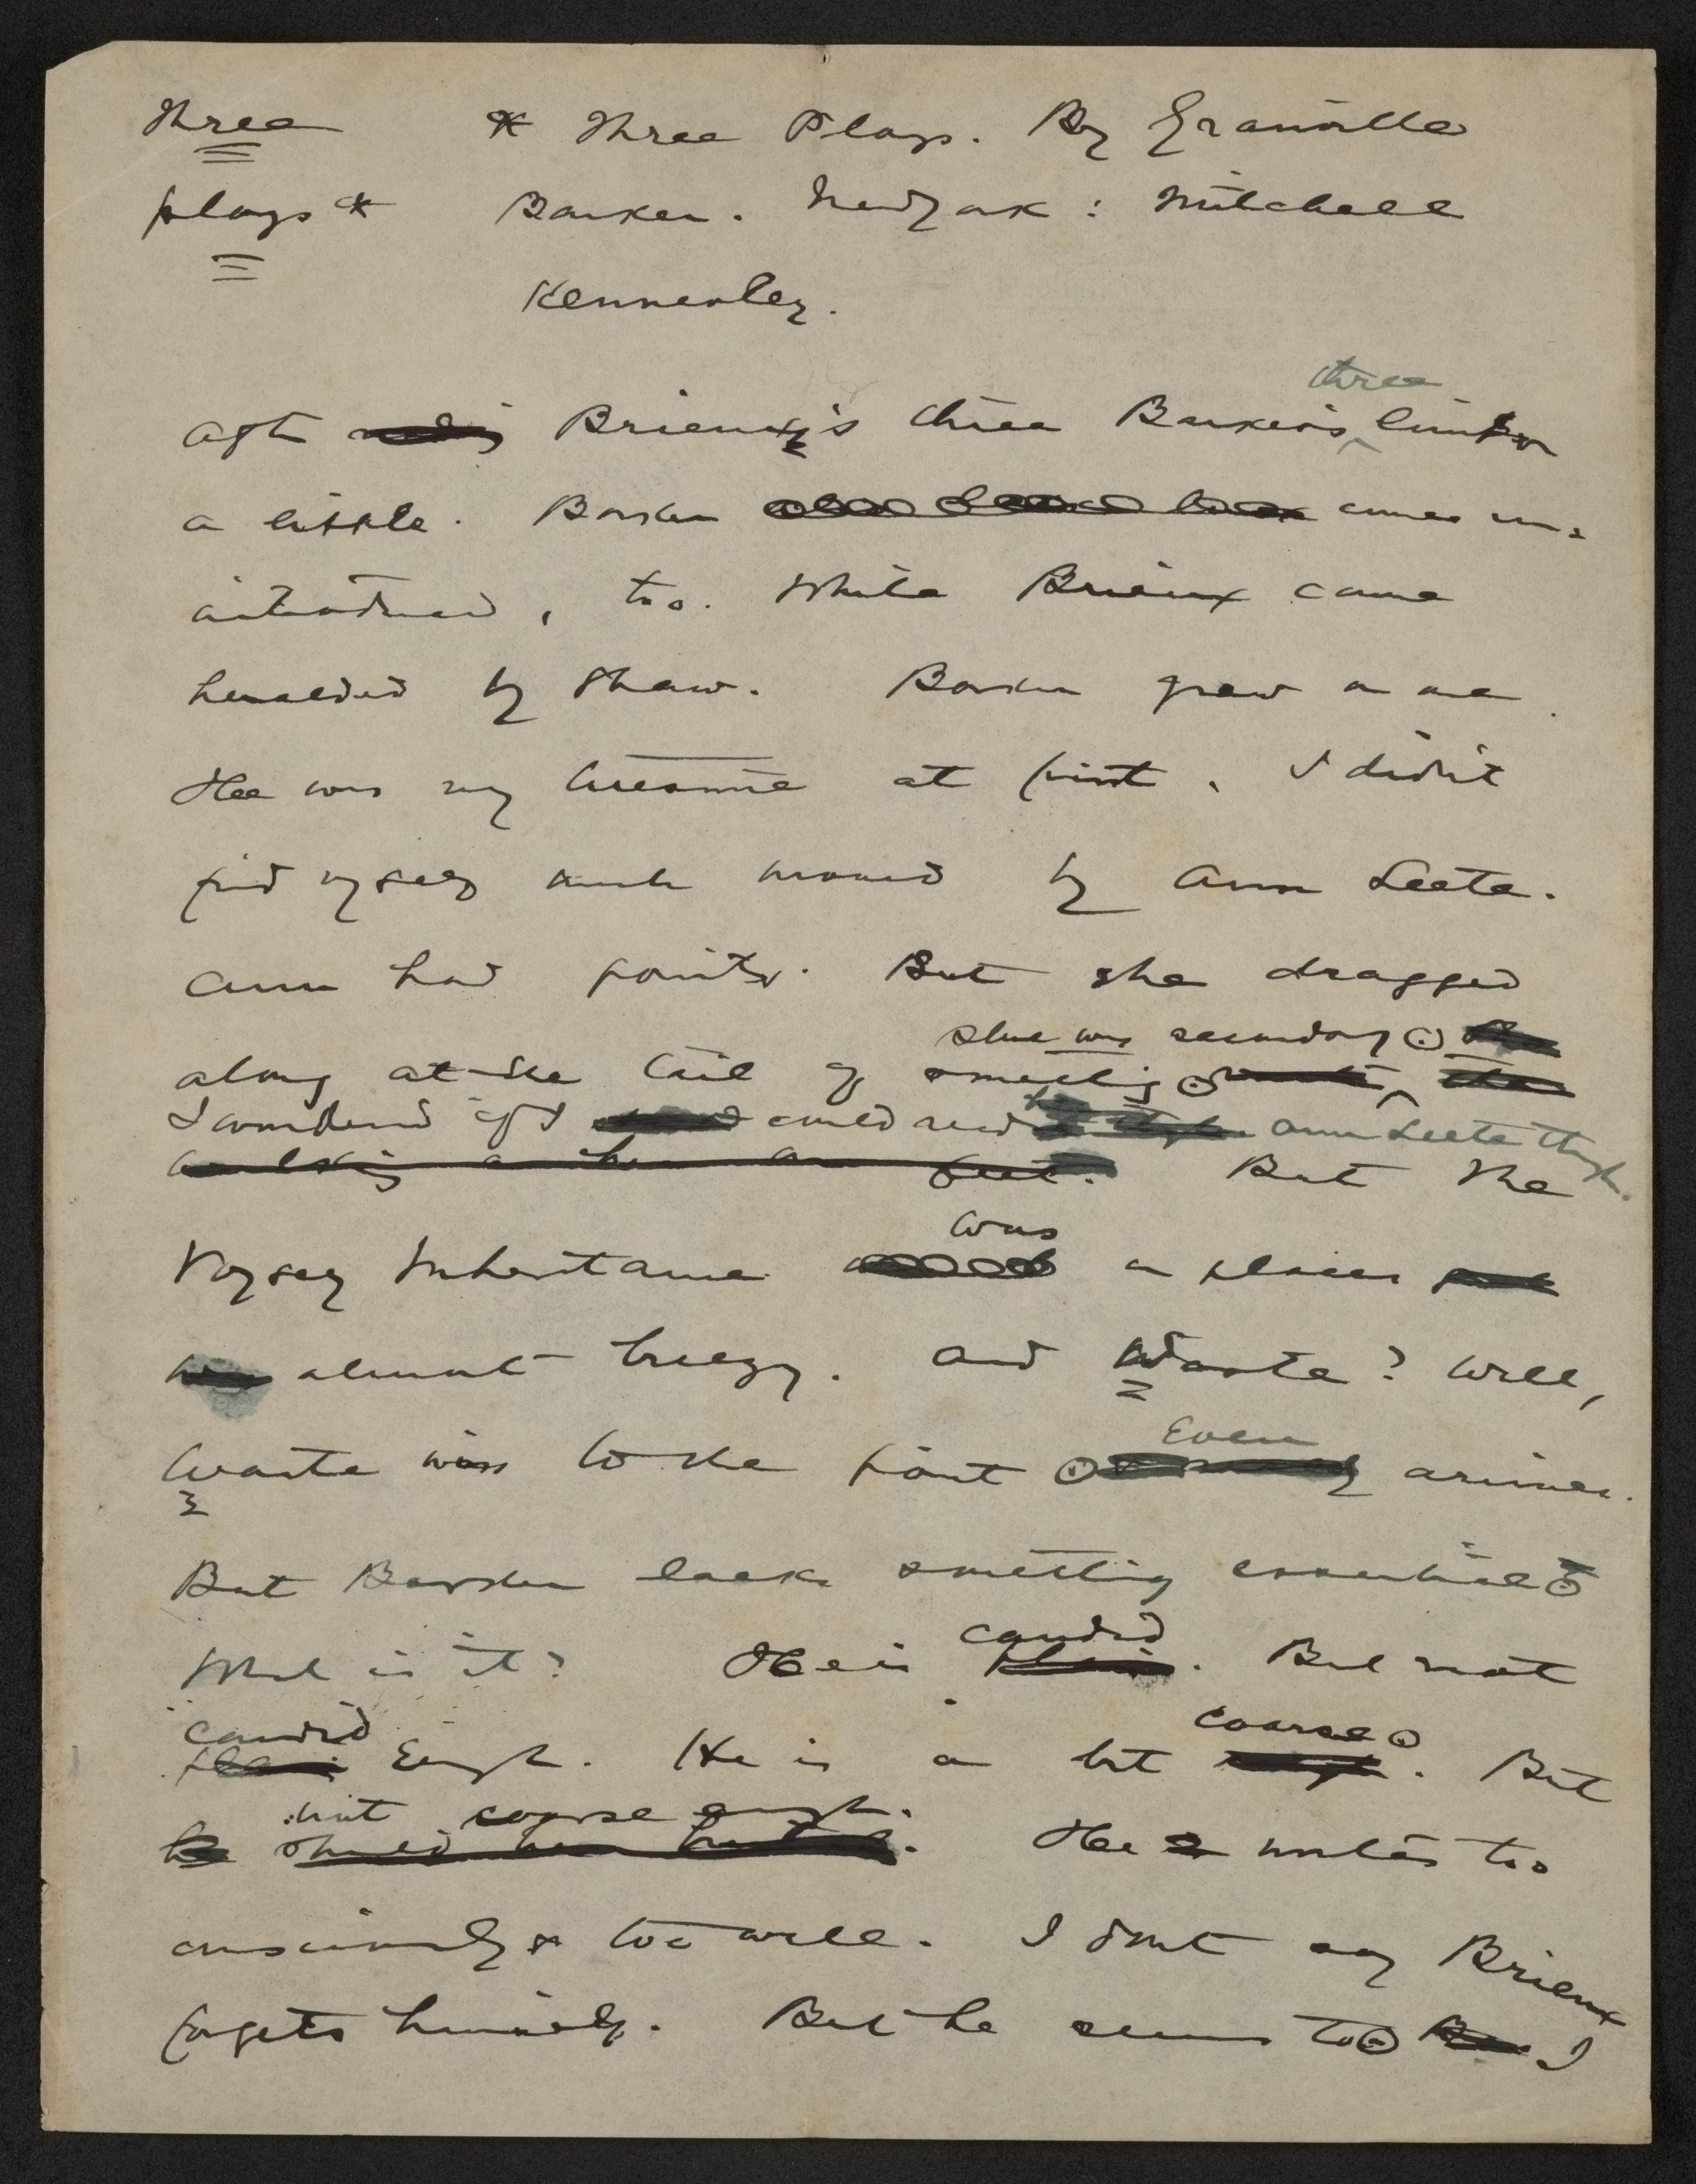 Three * Three Plays. By Granville
plays * Barker. New York : Mitchell
Kennerley.
three
After Brieux's three Barker's limp
a little. Barker comes un-
introduced, too. While Brieux came
heralded by Shaw. Barker grew on me.
He was my at first. I didn't
find myself much moved by Ann Leete.
Ann had points. But she dragged
she was secondary
along at the tail of something
I wondered if I could read Ann Leete through.
feet. But The
was
Voysey Inheritance a
almost breezy. And Waste? Well,
Even
Waste was to the point arrives.
But Barker lacks something essential
candid
What is it? He is . But not
candid coarse
enough. He is a bit . But
not coarse enough.
He writes too
consciously & too well. I don't say Brieux
forgets himself. But he seems to I